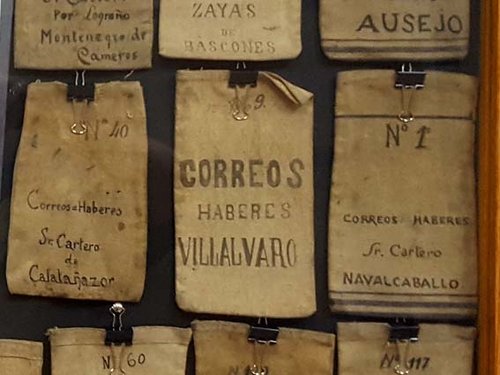 Por Logroño
Montenegro de
Cameros
ZAYAS
DE
BASCONES
AUSEJO
Nº 40
Correos=Haberes
Sr. Cartero
de
Calatañazor
69.
CORREOS
HABERES
VILLALVARO
Nº 1º
CORREOS HABERES
Sr. Cartero
NAVALCABALLO
Nº 60
Nº 117